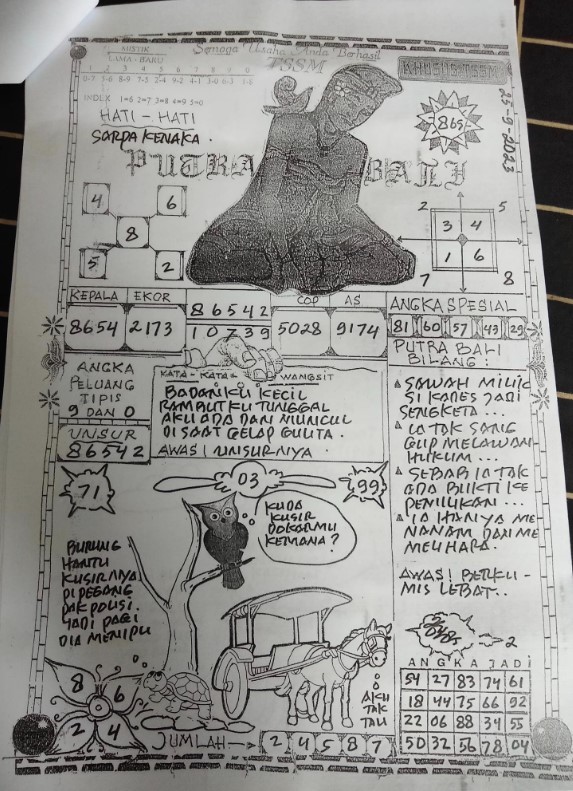 MISTIK
Semoga Usaha Anda Berhasil
LAMA - BARU
TSSM
KHUSUS TSSM
1 2 3 4 5 6 7 8 9 0
INDEX 1=6 2=7 3=8 4=9 5=0
25-9-2023
HATI - HATI
SARPA KENAKA.
865
PUTRA BALI
4 6
8
5 2
2 5
3 4
1 6
7 8
KEPALA EKOR
8654 2173
86542
10739
COP AS
5028 9174
ANGKA SPESIAL
81 60 57 43 29
ANGKA
PELUANG
TIPIS
9 DAN 0
UNSUR
86542
KATA - KATA - WANGSIT
BADANKU KECIL
RAMBUTKU TUNGGAL
AKU ADA DAN MUNCUL
DI SAAT GELAP GULITA.
AWAS! UNSURNYA
PUTRA BALI
BILANG:
SAWAH MILIK
SI KADES JADI
SENGKETA...
IA TAK SANG
GUP MELAWAN
HUKUM...
SEBAB IA TAK
ADA BUKTI KE
PEMILIKAN...
IA HANYA ME-
NANAM DAN ME
MELIHARA.
AWAS! BERKU-
MIS LEBAT..
71
03
99
KUDA
KUSIR
DOKARMU
KEMANA?
BURUNG
HANTU
KUSIRNYA
DIPEGANG
PAK POLISI.
JADI PAGI
DIA MENIPU
8 6
2 4
AKU
TAK
TAU
JUMLAH
2 4 5 8 7
2
ANGKA JADI
54 27 83 74 61
18 44 75 66 92
22 06 88 34 55
50 32 56 78 04